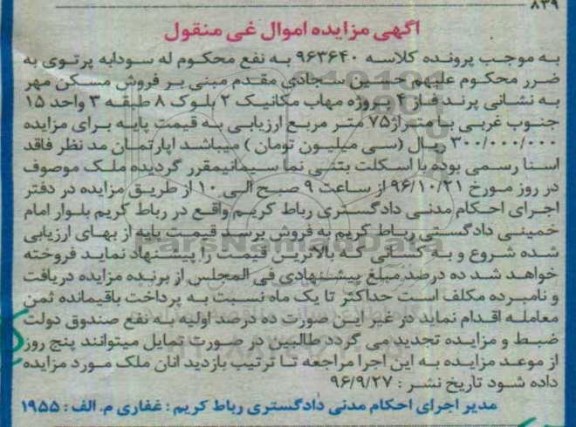 ۸۳۹
آگهی مزایده اموال غی منقول
به موجب پرونده کلاسه ۹۶۳۶۴۰ به نفع محکوم له سودابه پرتوی به
ضرر محکوم علیهم حسین سجادی مقدم مبنی بر فروش مسکن مهر
به نشانی پرند فاز ۲ پروژه مهاب مکانیک ۲ بلوک ۸ طبقه ۳ واحد ۱۵
جنوب غربی با متراژ ۷۵ متر مربع ارزیابی به قیمت پایه برای مزایده
۳۰۰/۰۰۰/۰۰۰ ریال (سی میلیون تومان) میباشد اپارتمان مد نظر فاقد
اسنا رسمی بوده با اسکلت بتنی نما سیمانیمقرر گردیده ملک موصوف
در روز مورخ ۹۶/۱۰/۲۱ از ساعت ۹ صبح الی ۱۰ از طریق مزایده در دفتر
اجرای احکام مدنی دادگستری رباط کریم واقع در رباط کریم بلوار امام
خمینی دادگستی رباط کریم به فروش برسد قیمت پایه از بهای ارزیابی
شده شروع و به کسانی که بالاترین قیمت را پیشنهاد نماید فروخته
خواهد شد ده درصد مبلغ پیشنهادی فی المجلس از برنده مزایده دریافت
و نامبرده مکلف است حداکثر تا یک ماه نسبت به پرداخت باقیمانده ثمن
معامله اقدام نماید در غیر این صورت ده درصد اولیه به نفع صندوق دولت
ضبط و مزایده تجدید می گردد طالبین در صورت تمایل میتوانند پنج روز
از موعد مزایده به این اجرا مراجعه تا ترتیب بازدید انان ملک مورد مزایده
داده شود تاریخ نشر : ۹۶/۹/۲۷
مدیر اجرای احکام مدنی دادگستری رباط کریم : غفاری م. الف : ۱۹۵۵
ParsNamadData